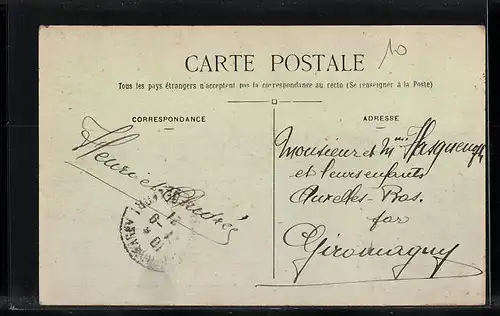 10
CARTE POSTALE
Tous les pays étrangers n'acceptent pas la correspondance au recto (Se renseigner à la Poste)
CORRESPONDANCE
ADRESSE
Henri et
Monsieur et Mme
et leurs enfants
Auxelles-Bas.
par
Giromagny